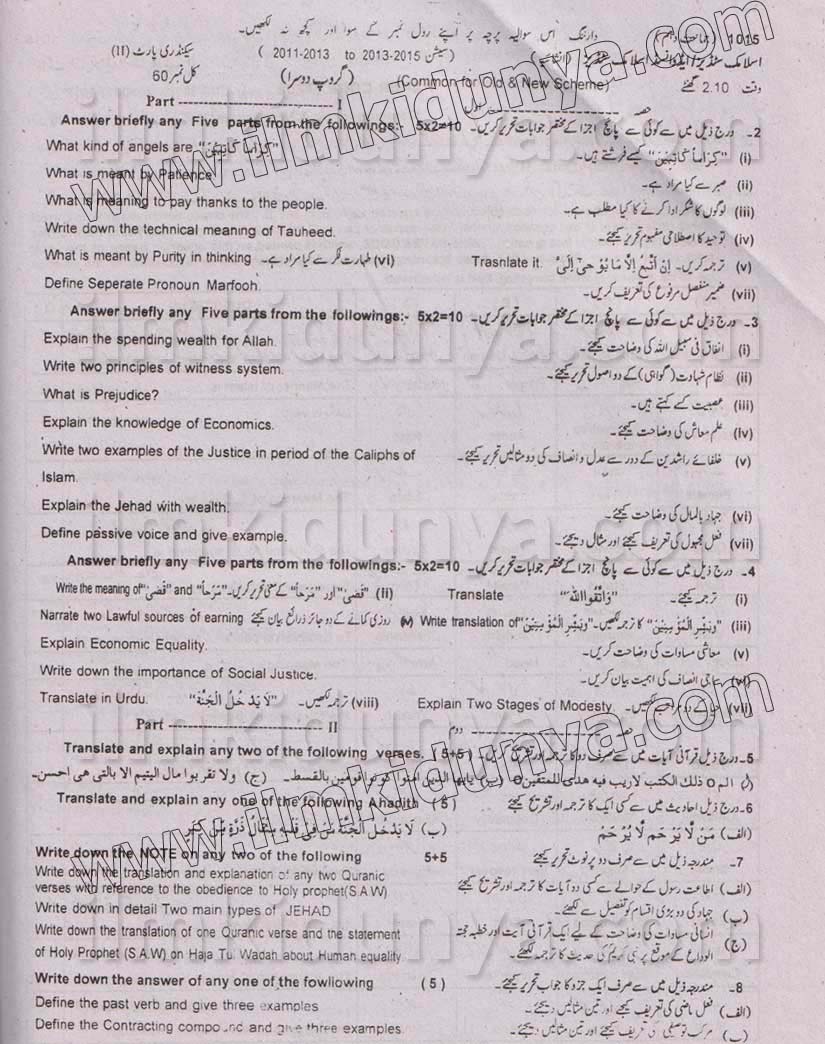 وارننگ۔ اس سوالیہ پرچہ پر اپنے رول نمبر کے سوا اور کچھ نہ لکھیں۔
1015 (جماعت دہم)
(سیشن 2013-2015 to 2011-2013) سیکنڈری پارٹ (II)
اسلامک سٹڈیز
وقت 2.10 گھنٹے (Common for Old & New Scheme) (گروپ دوسرا) کل نمبر 60
Part I حصہ اول
2۔ درج ذیل میں سے کوئی سے پانچ اجزا کے مختصر جوابات تحریر کریں۔ 5x2=10 Answer briefly any Five parts from the followings:-
(i) "کِرَاماً کَاتِبِیْنَ" کیسے فرشتے ہیں۔ What kind of angels are "کِرَاماً کَاتِبِیْنَ"
(ii) صبر سے کیا مراد ہے۔ What is meant by Patience
(iii) لوگوں کا شکر ادا کرنے کا کیا مطلب ہے۔ What is meaning to pay thanks to the people.
(iv) توحید کا اصطلاحی مفہوم تحریر کیجئے۔ Write down the technical meaning of Tauheed.
(v) ترجمہ کریں۔ اِنْ اَتَّبِعُ اِلَّا مَا یُوْحٰی اِلَیَّ Trasnlate it. (vi) طہارت فکر سے کیا مراد ہے۔ What is meant by Purity in thinking
(vii) ضمیر منفصل مرفوع کی تعریف کریں۔ Define Seperate Pronoun Marfooh.
3۔ درج ذیل میں سے کوئی سے پانچ اجزا کے مختصر جوابات تحریر کریں۔ 5x2=10 Answer briefly any Five parts from the followings:-
(i) انفاق فی سبیل اللہ کی وضاحت کیجئے۔ Explain the spending wealth for Allah.
(ii) نظام شہادت (گواہی) کے دو اصول تحریر کیجئے۔ Write two principles of witness system.
(iii) عصبیت کسے کہتے ہیں۔ What is Prejudice?
(iv) علم معاش کی وضاحت کیجئے۔ Explain the knowledge of Economics.
(v) خلفائے راشدین کے دور سے عدل و انصاف کی دو مثالیں تحریر کیجئے۔ Write two examples of the Justice in period of the Caliphs of
Islam.
(vi) جہاد بالمال کی وضاحت کیجئے۔ Explain the Jehad with wealth.
(vii) فعل مجہول کی تعریف کیجئے اور مثال دیجئے۔ Define passive voice and give example.
4۔ درج ذیل میں سے کوئی سے پانچ اجزا کے مختصر جوابات تحریر کریں۔ 5x2=10 Answer briefly any Five parts from the followings:-
(i) ترجمہ کیجئے۔ "وَاتَّقُوااللّٰہَ" Translate (ii) "قَضیٰ" اور "مَرَحاً" کے معنی تحریر کریں۔ Write the meaning of "قَضیٰ" and "مَرَحاً"
(iii) "وَبَشِّرِ الْمُؤْمِنِیْنَ" کا ترجمہ لکھیں۔ Write translation of "وَبَشِّرِ الْمُؤْمِنِیْنَ" (iv) روزی کمانے کے دو جائز ذرائع بیان کیجئے Narrate two Lawful sources of earning
(v) معاشی مساوات کی وضاحت کریں۔ Explain Economic Equality.
سماجی انصاف کی اہمیت بیان کریں۔ Write down the importance of Social Justice.
(vii) Explain Two Stages of Modesty. (viii) ترجمہ لکھیں۔ "لَا یَدْخُلُ الْجَنَّۃَ" Translate in Urdu.
Part II حصہ دوم
5۔ درج ذیل قرآنی آیات میں سے صرف دو کا ترجمہ اور تشریح کریں۔ (5+5) Translate and explain any two of the following verses.
الم o ذلك الكتب لاريب فيه هدى للمتقين o (ب) يايها الذين امنوا كونوا قوامين بالقسط۔ (ج) ولا تقربوا مال اليتيم الا بالتي هي احسن۔
6۔ درج ذیل احادیث میں سے کسی ایک کا ترجمہ اور تشریح کیجئے (5) Translate and explain any one of the following Ahadith
(الف) مَنْ لَا یَرْحَمْ لَا یُرْحَمْ (ب) لَا یَدْخُلُ الْجَنَّۃَ مَنْ فِیْ قَلْبِہٖ مِثْقَالُ ذَرَّۃٍ مِّنْ کِبْرٍ
7۔ مندرجہ ذیل میں سے صرف دو پر نوٹ تحریر کیجئے 5+5 Write down the NOTE on any two of the following
(الف) اطاعت رسول کے حوالے سے کسی دو آیات کا ترجمہ اور تشریح کیجئے Write down the translation and explanation of any two Quranic
verses with reference to the obedience to Holy prophet(S.A.W)
(ب) جہاد کی دو بڑی اقسام کو تفصیل سے لکھئے۔ Write down in detail Two main types of JEHAD
(ج) انسانی مساوات کی وضاحت کے لیے ایک قرآنی آیت اور خطبہ حجۃ Write down the translation of one Quranic verse and the statement
الوداع کے موقع پر نبی کریم کی حدیث کا ترجمہ لکھئے۔ of Holy Prophet (S.A.W) on Haja Tul Wadah about Human equality
8۔ مندرجہ ذیل میں سے صرف ایک جزو کا جواب تحریر کیجئے۔ (5) Write down the answer of any one of the fowllowing
(الف) فعل ماضی کی تعریف کیجئے اور تین مثالیں دیجئے۔ Define the past verb and give three examples
(ب) مرکب توصیفی کی تعریف کیجئے اور تین مثالیں دیجئے۔ Define the Contracting compound and give three examples.
www.ilmkidunya.com
www.ilmkidunya.com